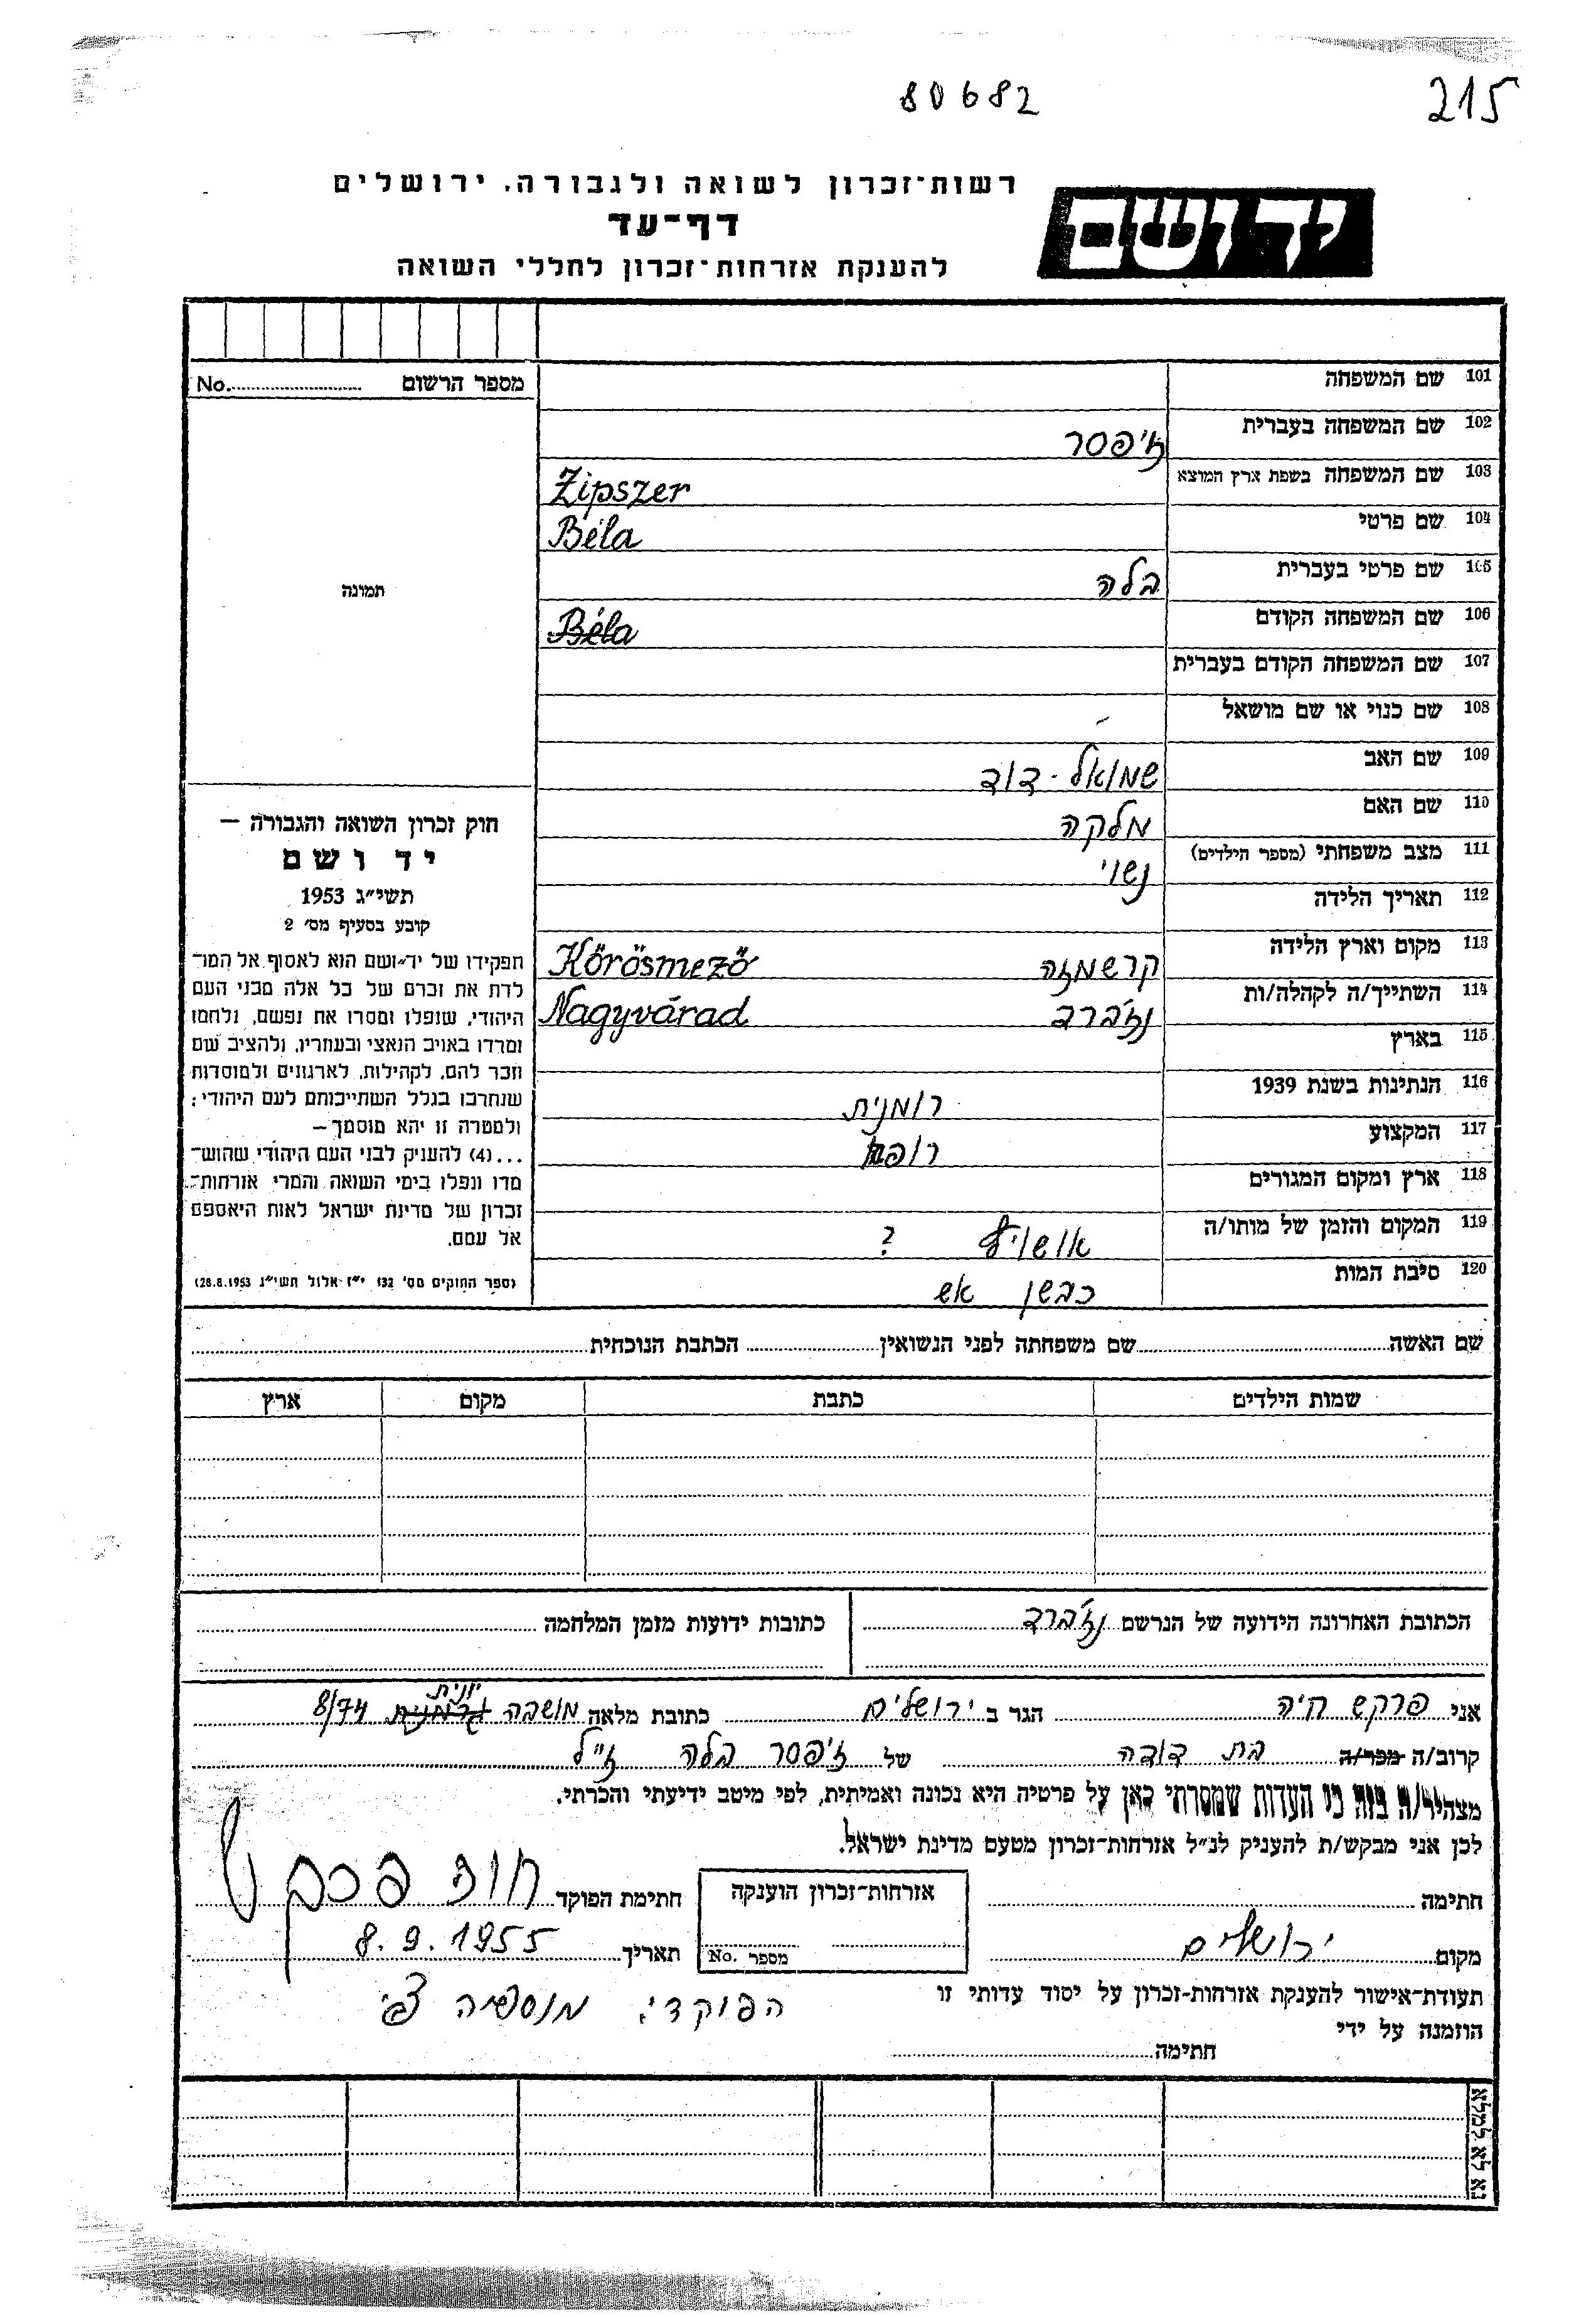 80682
215
רשות־זכרון לשואה ולגבורה, ירושלים
יד ושם
דף־עד
להענקת אזרחות־זכרון לחללי השואה
מספר הרשום No.
תמונה
חוק זכרון השואה והגבורה –
יד ושם
תשי״ג 1953
קובע בסעיף מס׳ 2
תפקידו של יד־ושם הוא לאסוף אל המו־
לדת את זכרם של כל אלה מבני העם
היהודי, שנפלו ומסרו את נפשם, נלחמו
ומרדו באויב הנאצי ובעוזריו, ולהציב שם
וזכר להם, לקהילות, לארגונים ולמוסדות
שנחרבו בגלל השתייכותם לעם היהודי;
ולמטרה זו יהא מוסמך –
...(4) להעניק לבני העם היהודי שהוש־
מדו ונפלו בימי השואה והמרי אזרחות־
זכרון של מדינת ישראל לאות היאספם
אל עמם.
(ספר החוקים מס׳ 132 י״ז אלול תשי״ג 28.8.1953)
101 שם המשפחה
102 שם המשפחה בעברית זיפסר
103 שם המשפחה בשפת ארץ המוצא Zipszer
104 שם פרטי Béla
105 שם פרטי בעברית בלה
106 שם המשפחה הקודם Béla
107 שם המשפחה הקודם בעברית
108 שם כנוי או שם מושאל -
109 שם האב שמואל - דוד
110 שם האם מלקה
111 מצב משפחתי (מספר הילדים) נשוי
112 תאריך הלידה
113 מקום וארץ הלידה קרשמזה Kőrösmező
114 השתייך/ה לקהלה/ות נז'ברד Nagyvárad
115 בארץ
116 הנתינות בשנת 1939 רומנית
117 המקצוע רופא
118 ארץ ומקום המגורים
119 המקום והזמן של מותו/ה אושויץ ?
120 סיבת המות כבשן אש
שם האשה שם משפחתה לפני הנשואין הכתבת הנוכחית
שמות הילדים כתבת מקום ארץ
הכתובת האחרונה הידועה של הנרשם נז'ברד כתובות ידועות מזמן המלחמה
אני פרקש חיה הגר ב ירושלים כתובת מלאה מושבה גרמנית יונית 8/74
קרוב/ה מכר/ה בת דודה של זיפסר בלה ז"ל
מצהיר/ה בזה כי העדות שמסרתי כאן על פרטיה היא נכונה ואמיתית, לפי מיטב ידיעתי והכרתי.
לכן אני מבקש/ת להעניק לנ״ל אזרחות־זכרון מטעם מדינת ישראל.
חתימה אזרחות־זכרון הוענקה חתימת הפוקד
מקום ירושלים מספר No. תאריך 8.9.1955
תעודת־אישור להענקת אזרחות־זכרון על יסוד עדותי זו
הפוקד:
הוזמנה על ידי
חתימה
נא לא למלא